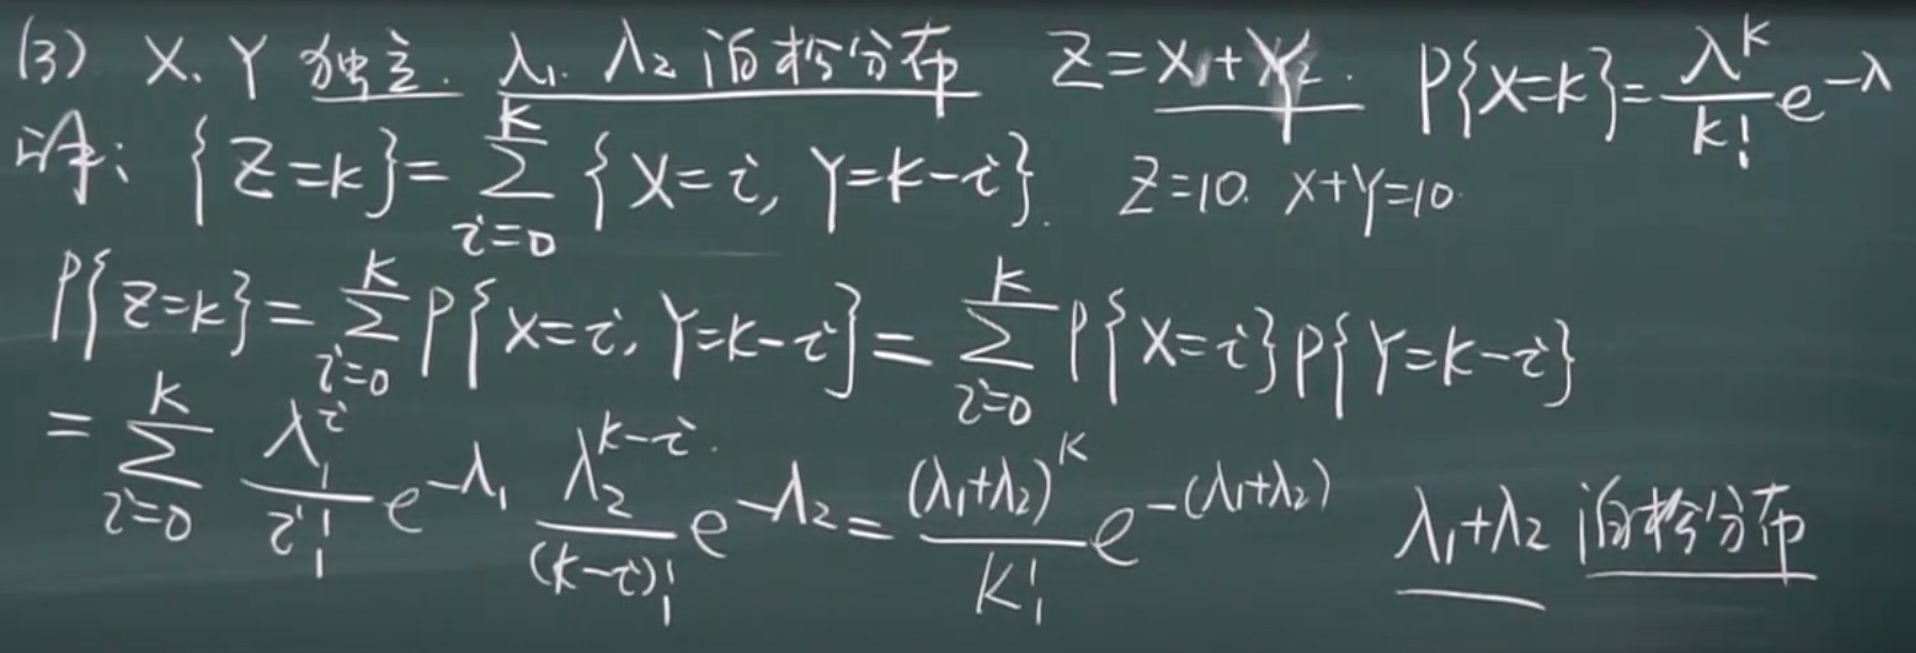 (3) X、Y 独立. λ₁. λ₂ 泊松分布 Z=X+Y. P{X=k}=\frac{λ^k}{k!}e^{-λ}
证: {Z=k}=\sum_{i=0}^{k}{X=i, Y=k-i}. Z=10. X+Y=10.
P{Z=k}=\sum_{i=0}^{k}P{X=i, Y=k-i}=\sum_{i=0}^{k}P{X=i}P{Y=k-i}
=\sum_{i=0}^{k}\frac{λ_1^i}{i!}e^{-λ_1}\frac{λ_2^{k-i}}{(k-i)!}e^{-λ_2}=\frac{(λ_1+λ_2)^k}{k!}e^{-(λ_1+λ_2)} λ₁+λ₂ 泊松分布